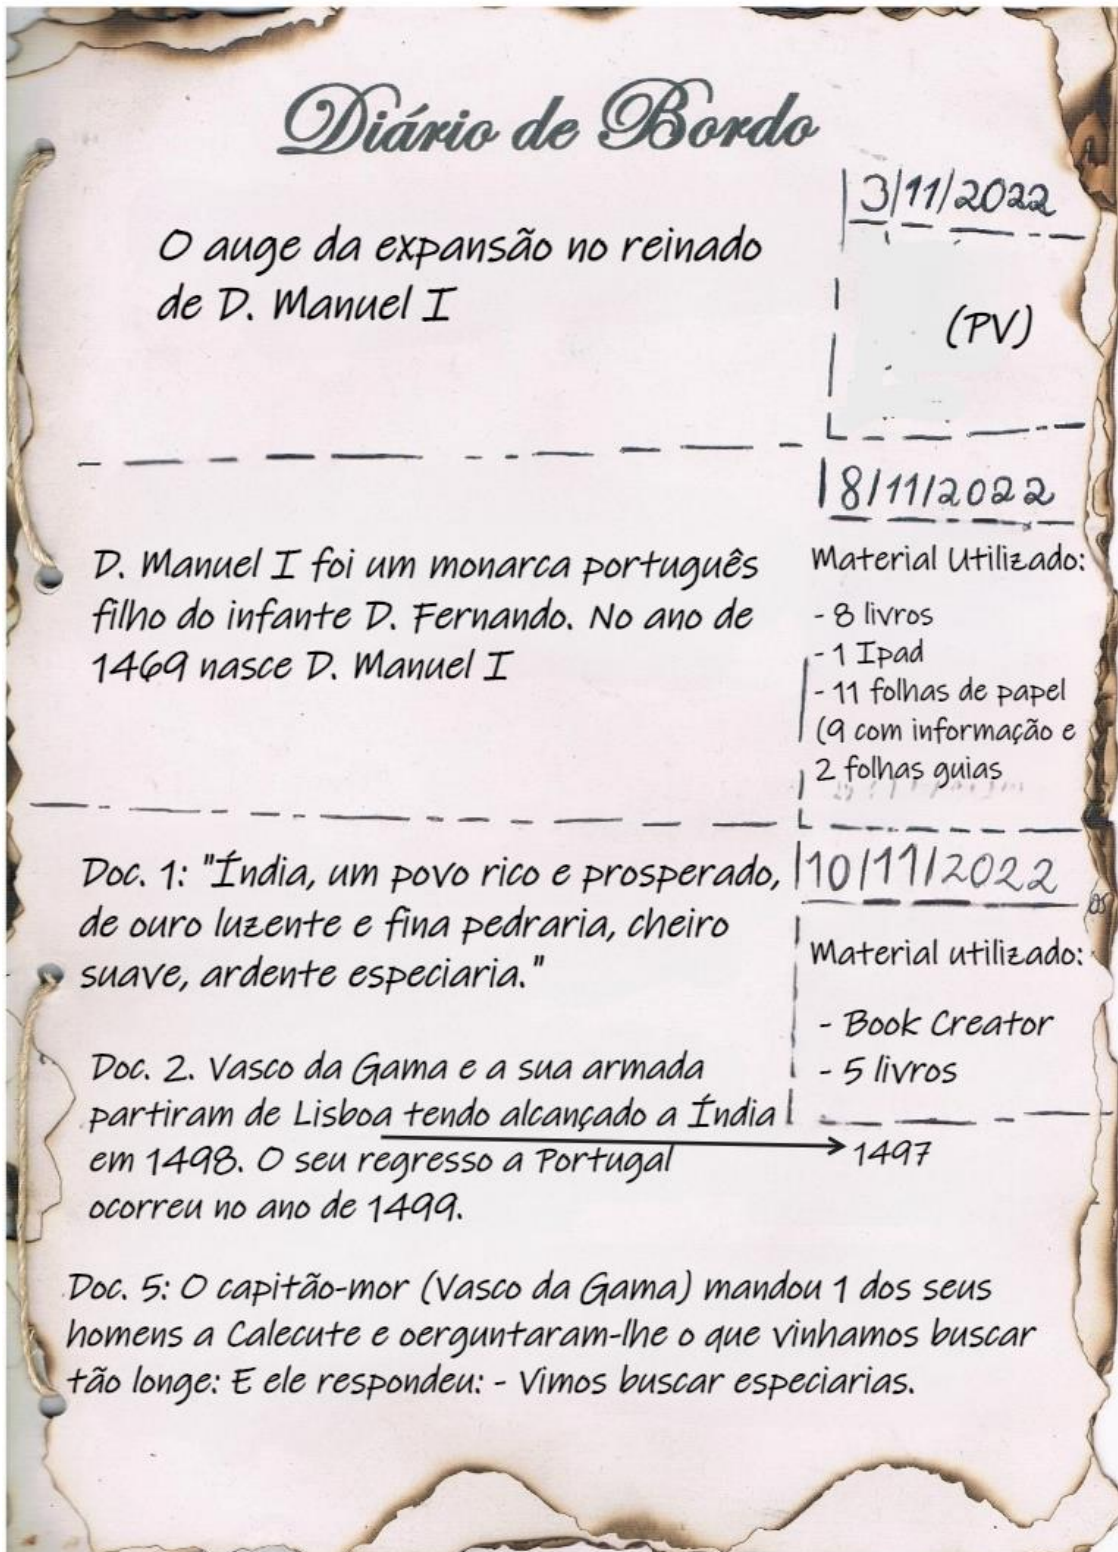 Diário de Bordo
3/11/2022
O auge da expansão no reinado
de D. Manuel I
(PV)
8/11/2022
D. Manuel I foi um monarca português
filho do infante D. Fernando. No ano de
1469 nasce D. Manuel I
Material Utilizado:
- 8 livros
- 1 Ipad
- 11 folhas de papel
(9 com informação e
2 folhas guias
10/11/2022
Doc. 1: "Índia, um povo rico e prosperado,
de ouro luzente e fina pedraria, cheiro
suave, ardente especiaria."
Material utilizado:
- Book Creator
- 5 livros
Doc. 2. Vasco da Gama e a sua armada
partiram de Lisboa tendo alcançado a Índia
em 1498. O seu regresso a Portugal
ocorreu no ano de 1499.
1497
Doc. 5: O capitão-mor (Vasco da Gama) mandou 1 dos seus
homens a Calecute e oerguntaram-lhe o que vinhamos buscar
tão longe: E ele respondeu: - Vimos buscar especiarias.